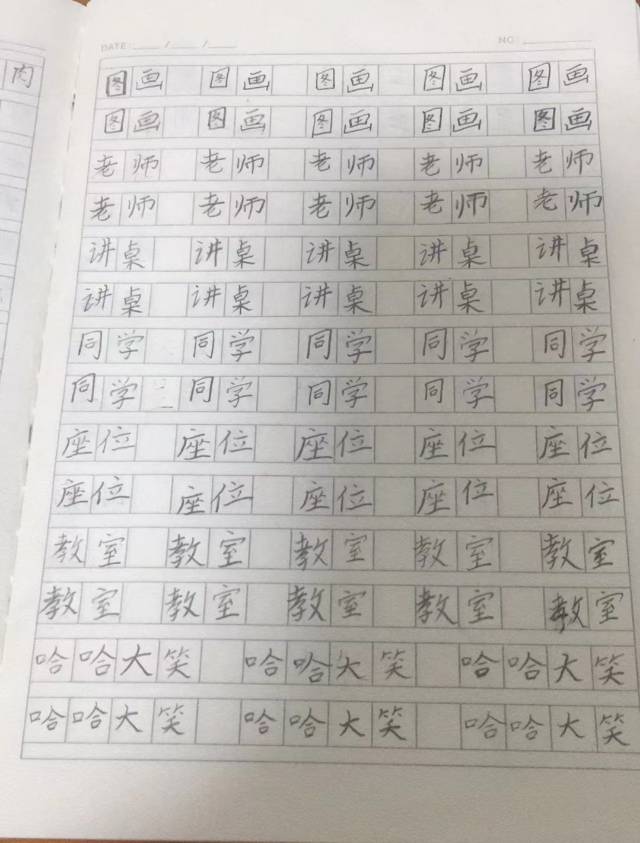 肉
DATE: / / NO:
图画 图画 图画 图画 图画
图画 图画 图画 图画 图画
老师 老师 老师 老师 老师
老师 老师 老师 老师 老师
讲桌 讲桌 讲桌 讲桌 讲桌
讲桌 讲桌 讲桌 讲桌 讲桌
同学 同学 同学 同学 同学
同学 同学 同学 同学 同学
座位 座位 座位 座位 座位
座位 座位 座位 座位 座位
教室 教室 教室 教室 教室
教室 教室 教室 教室 教室
哈哈大笑 哈哈大笑 哈哈大笑
哈哈大笑 哈哈大笑 哈哈大笑